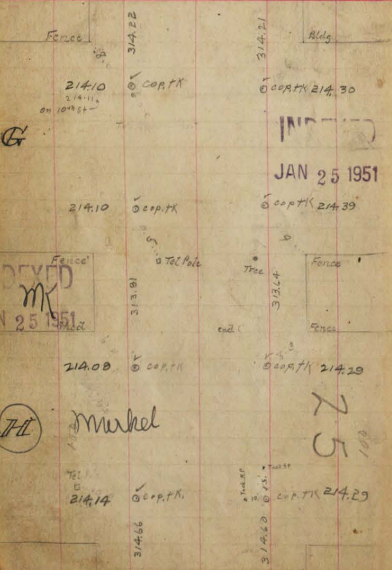 Fence
314.22
314.21
Bldg.
214.10 cop.tk
cop.tk 214.30
on 10th St
G
INDEXED
JAN 25 1951
214.10 cop.tk
cop.tk 214.39
Fence
Tel Pole
Tree
Fence
DEXED
MK
N 25 1951
313.81
313.64
Fence
214.09 cop.tk
cop.tk 214.29
H
Merkel
25
100
Tel
214.14 cop.tk.
cop.tk 214.29
314.66
314.60